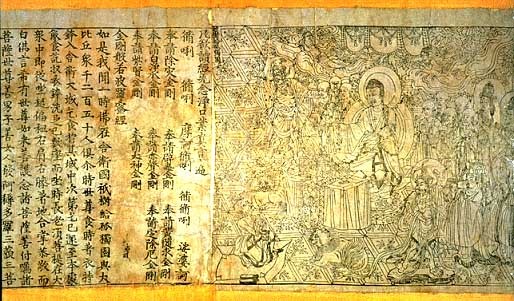 凡欲讀經先念淨口業真言一遍
脩唎 脩唎 摩訶脩唎 脩脩唎 娑婆訶
奉請除災金剛 奉請辟毒金剛 奉請黃隨求金剛
奉請白淨水金剛 奉請赤聲金剛 奉請定除厄金剛
奉請紫賢金剛 奉請大神金剛
金剛般若波羅蜜經
如是我聞一時佛在舍衛國祇樹給孤獨園與大
比丘眾千二百五十人俱尒時世尊食時著衣持
鉢入舍衛大城乞食於其城中次第乞已還至本處
飯食訖收衣鉢洗足已敷座而坐時長老須菩提在大
眾中即從坐起偏袒右肩右膝著地合掌恭敬而
白佛言希有世尊如來善護念諸菩薩善付囑諸
菩薩世尊善男子善女人發阿耨多羅三藐三菩